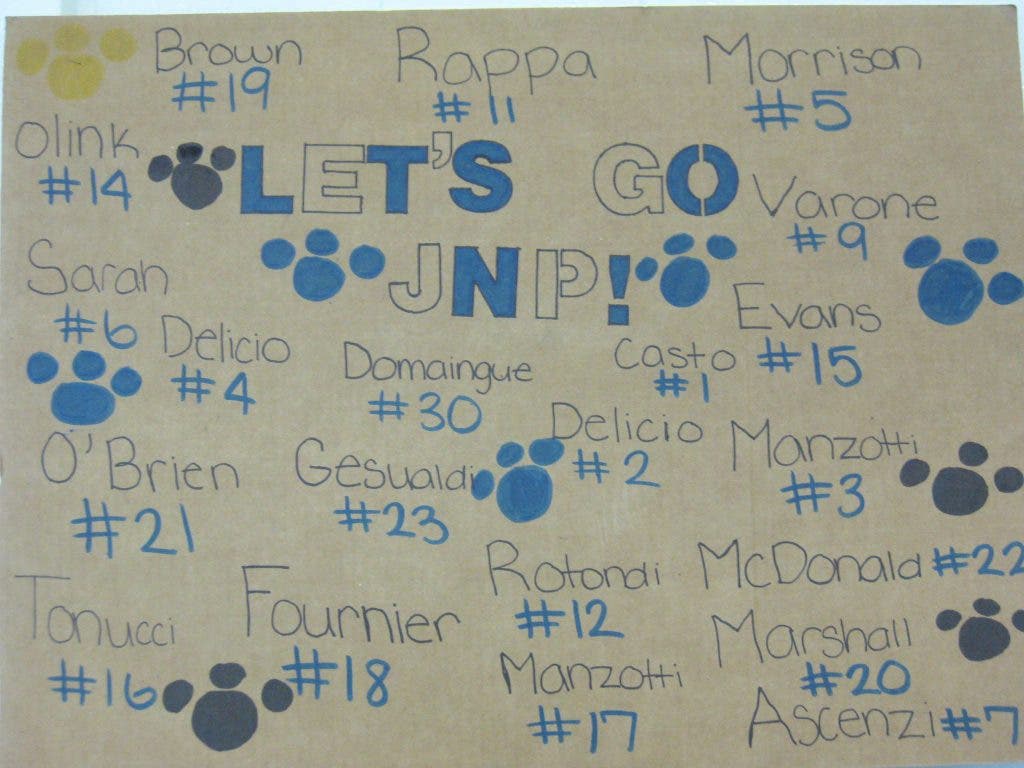 Brown
#19
Rappa
#11
Morrison
#5
Olink
#14
LET'S GO
JNP!
Varone
#9
Saran
#6
Evans
#15
Delicio
#4
Domaingue
#30
Casto
#1
Delicio
#2
Manzotti
#3
O'Brien
#21
Gesualdi
#23
Rotondi
#12
McDonald #22
Tonucci
#16
Fournier
#18
Marshall
#20
Manzotti
#17
Ascenzi #7